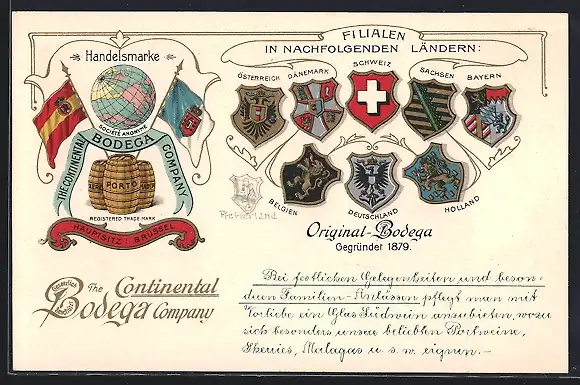 Handelsmarke
SOCIÉTÉ ANONYME
THE CONTINENTAL BODEGA COMPANY
PORTO
REGISTERED TRADE MARK
HAUPTSITZ: BRÜSSEL
FILIALEN
IN NACHFOLGENDEN LÄNDERN:
ÖSTERREICH DÄNEMARK SCHWEIZ SACHSEN BAYERN
BELGIEN DEUTSCHLAND HOLLAND
Original-Bodega
Gegründet 1879.
The Continental
Bodega Company
Gesetzlich
Bei festlichen Gelegenheiten und beson-
deren Familien-Anlässen pflegt man mit
Vorliebe ein Glas Südwein anzubieten, wozu
sich besonders unsere beliebten Portweine,
Sherries, Malagas u. s. w. eignen.-